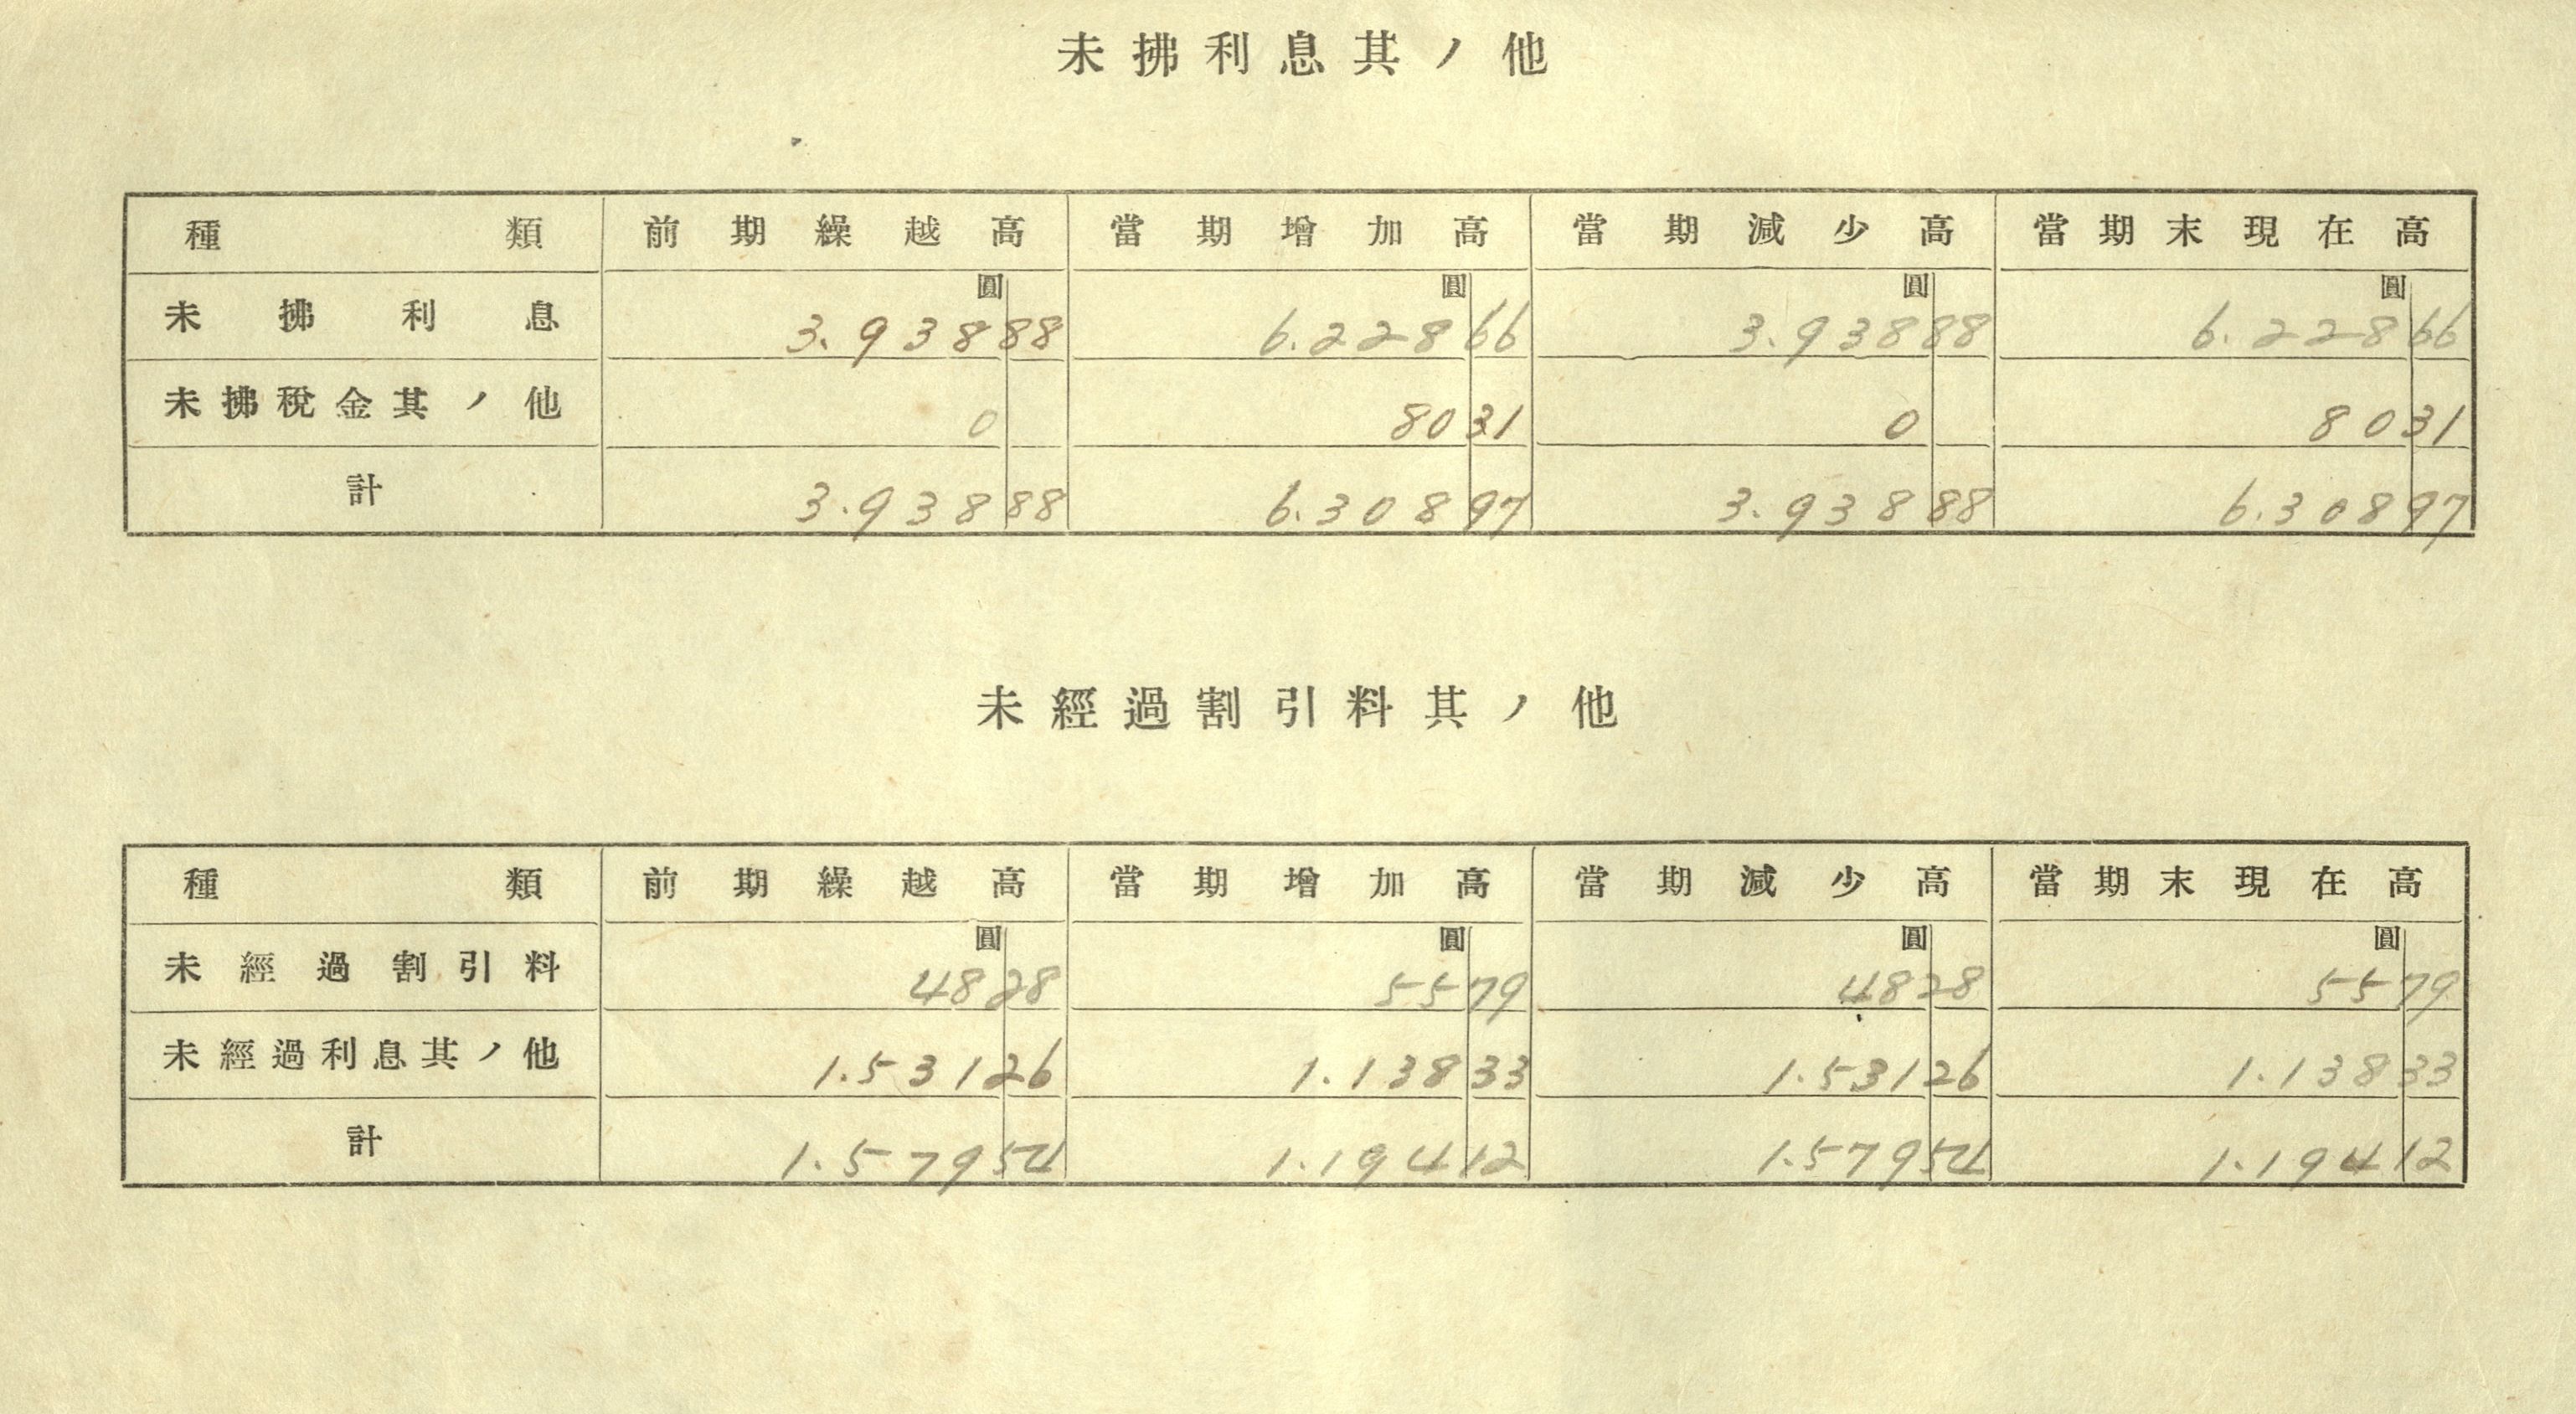 未拂利息其ノ他
種類 前期繰越高 當期增加高 當期減少高 當期末現在高
圓 圓 圓 圓
未拂利息 3.938 88 6.228 66 3.938 88 6.228 66
未拂稅金其ノ他 0 80 31 0 80 31
計 3.938 88 6.308 97 3.938 88 6.308 97
未經過割引料其ノ他
種類 前期繰越高 當期增加高 當期減少高 當期末現在高
圓 圓 圓 圓
未經過割引料 48 28 55 79 48 28 55 79
未經過利息其ノ他 1.531 26 1.138 33 1.531 26 1.138 33
計 1.579 54 1.194 12 1.579 54 1.194 12